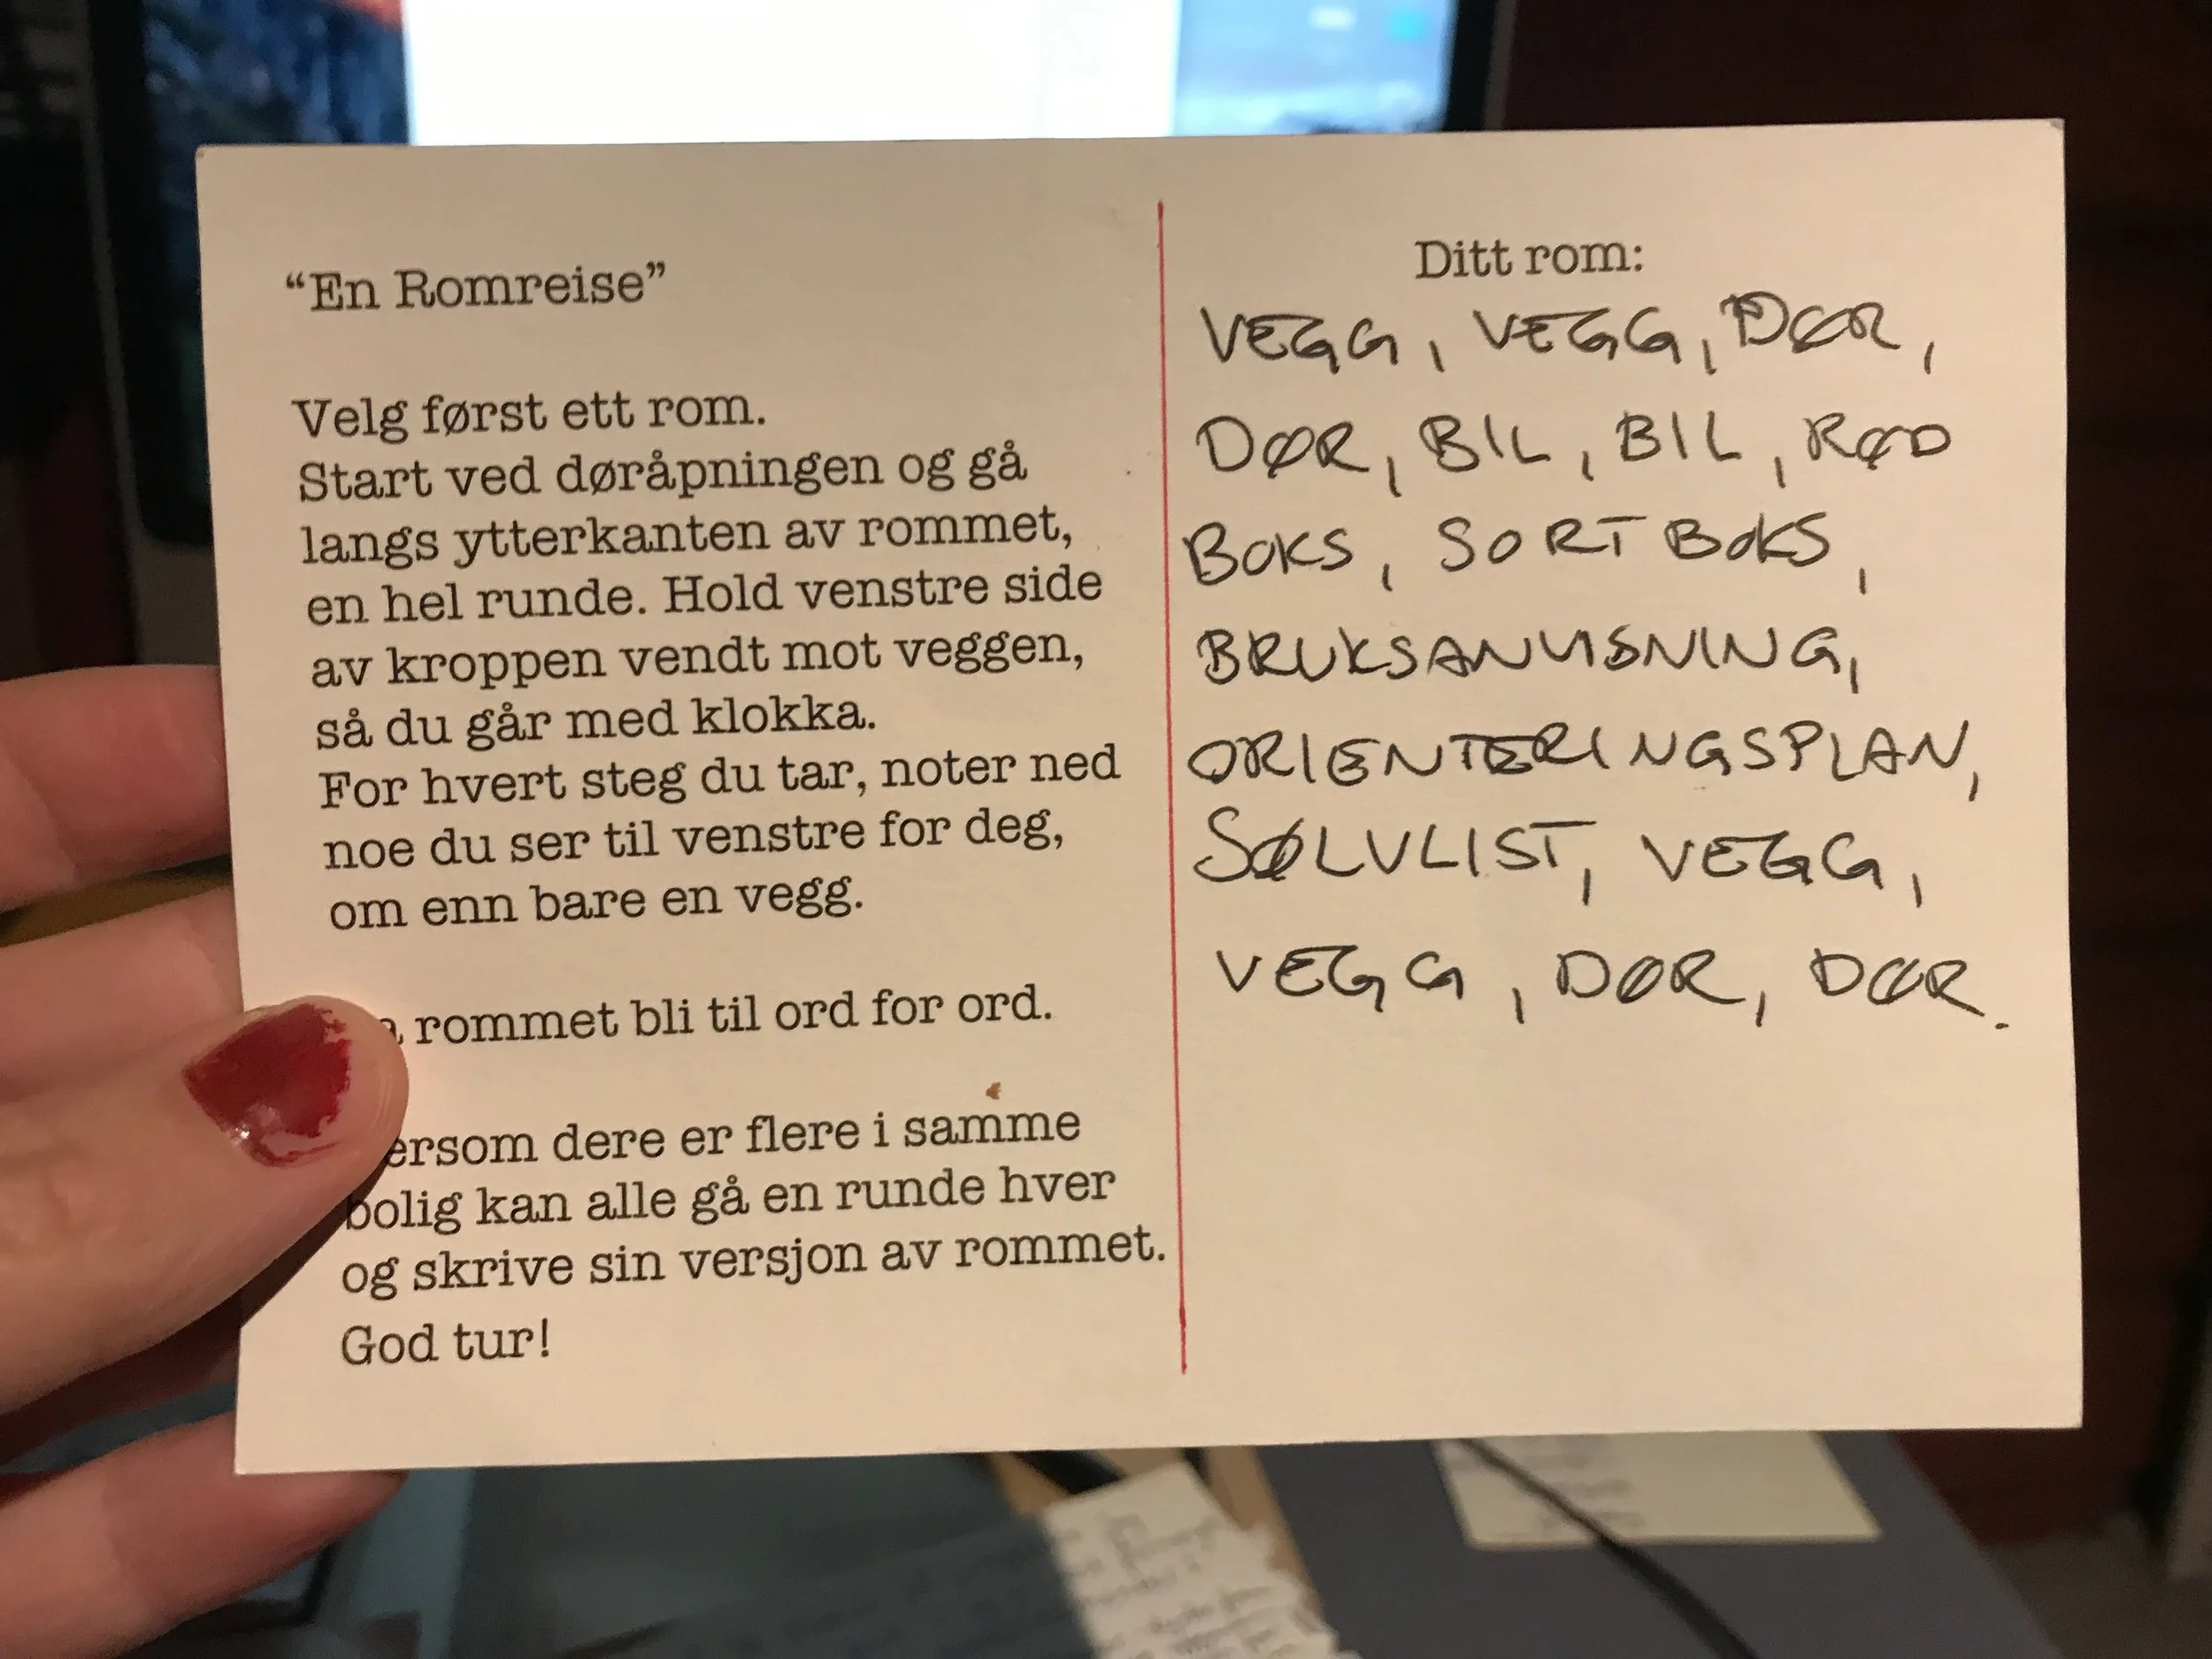 “En Romreise”
Velg først ett rom.
Start ved døråpningen og gå
langs ytterkanten av rommet,
en hel runde. Hold venstre side
av kroppen vendt mot veggen,
så du går med klokka.
For hvert steg du tar, noter ned
noe du ser til venstre for deg,
om enn bare en vegg.
rommet bli til ord for ord.
ersom dere er flere i samme
bolig kan alle gå en runde hver
og skrive sin versjon av rommet.
God tur!
Ditt rom:
VEGG, VEGG, DØR,
DØR, BIL, BIL, RØD
BOKS, SORT BOKS,
BRUKSANVISNING,
ORIENTERINGSPLAN,
SØLVLIST, VEGG,
VEGG, DØR, DØR.